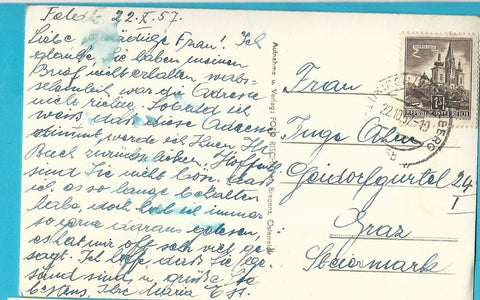 22.X.57.
Liebe gnädige Frau! Ich
glaube, Sie haben meinen
Brief nicht erhalten, wahr-
scheinlich war die Adresse
nicht richtig. Sobald ich
weiß, daß diese Adresse
stimmt, werde ich Ihnen Ihr
Buch zurückschicken. Hoffentl.
sind Sie nicht böse, daß
ich es so lange behalten
habe, doch hab ich immer
so gerne daraus gelesen,
es hat mir oft sehr viel ge-
sagt. Ich hoffe daß Sie ge-
sund sind u. grüße Sie
bestens, Ihre Maria
Aufnahme u. Verlag: FOTO Bregenz, Österreich
Frau
Inge
Geidorfgürtel 24
I
Graz
Steiermark
REPUBLIK ÖSTERREICH
22.10.57-10